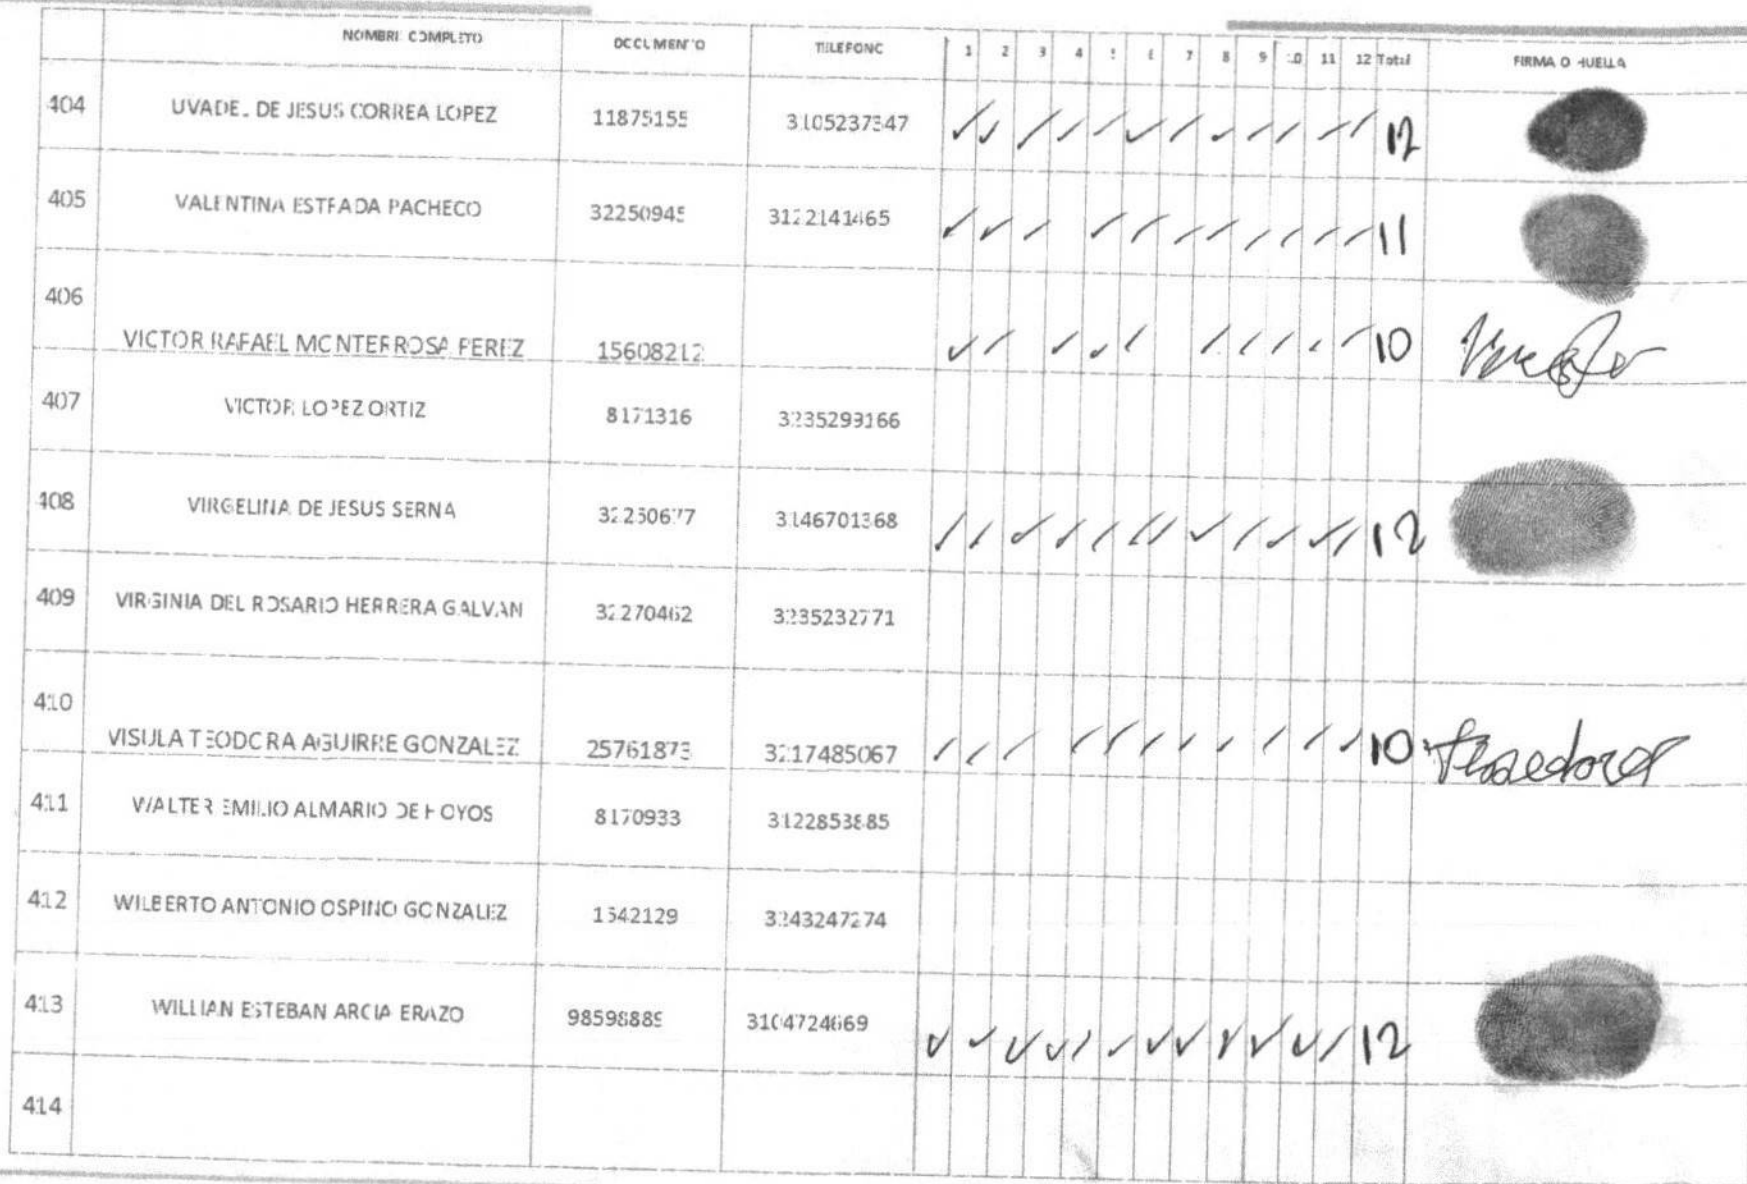 NOMBRE COMPLETO DOCUMENTO TELEFONO 1 2 3 4 5 6 7 8 9 10 11 12 Total FIRMA O HUELLA
404 UVADEL DE JESUS CORREA LOPEZ 11875155 3105237347 ✓ ✓ ✓ ✓ ✓ ✓ ✓ ✓ ✓ ✓ ✓ ✓ 12
405 VALENTINA ESTRADA PACHECO 32250945 3122141465 ✓ ✓ ✓ ✓ ✓ ✓ ✓ ✓ ✓ ✓ ✓ 11
406 VICTOR RAFAEL MONTERROSA PEREZ 15608212 ✓ ✓ ✓ ✓ ✓ ✓ ✓ ✓ ✓ ✓ 10
407 VICTOR LOPEZ ORTIZ 8171316 3235299166
408 VIRGELINA DE JESUS SERNA 32250677 3146701368 ✓ ✓ ✓ ✓ ✓ ✓ ✓ ✓ ✓ ✓ ✓ ✓ 12
409 VIRGINIA DEL ROSARIO HERRERA GALVAN 32270462 3235232771
410 VISULA TEODORA AGUIRRE GONZALEZ 25761873 3217485067 ✓ ✓ ✓ ✓ ✓ ✓ ✓ ✓ ✓ ✓ ✓ 10
411 WALTER EMILIO ALMARIO DE HOYOS 8170933 3122853885
412 WILBERTO ANTONIO OSPINO GONZALEZ 1542129 3243247274
413 WILLIAN ESTEBAN ARCIA ERAZO 98598889 3104724669 ✓ ✓ ✓ ✓ ✓ ✓ ✓ ✓ ✓ ✓ ✓ ✓ 12
414